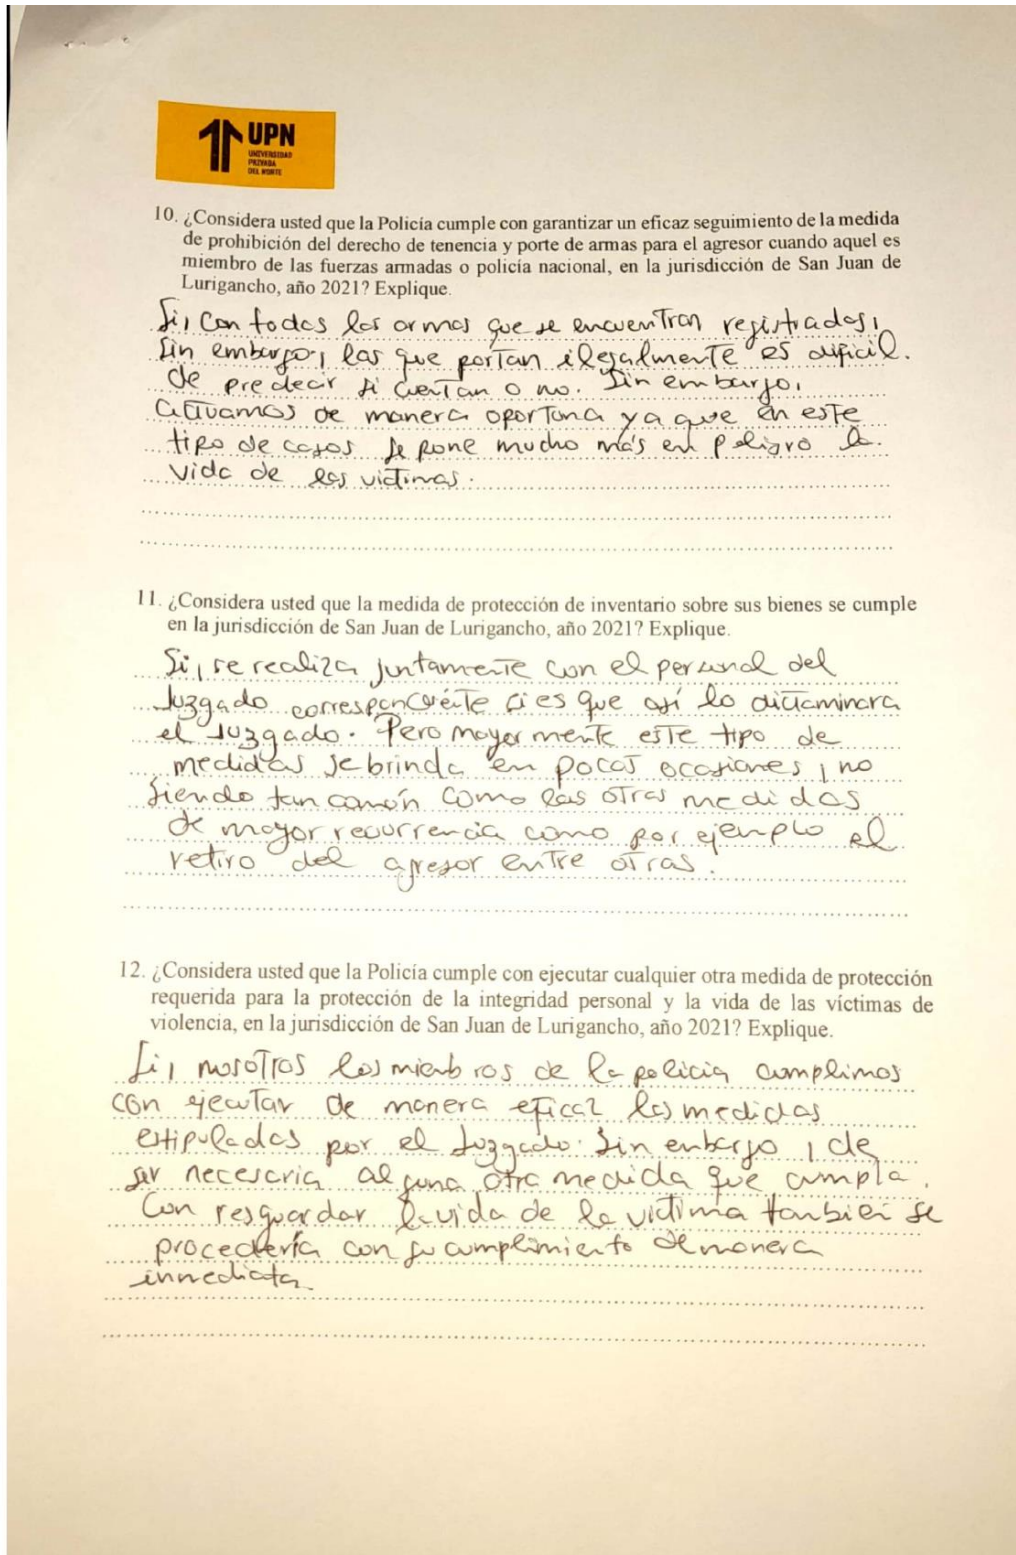 UPN
UNIVERSIDAD
PRIVADA
DEL NORTE
10. ¿Considera usted que la Policía cumple con garantizar un eficaz seguimiento de la medida
de prohibición del derecho de tenencia y porte de armas para el agresor cuando aquel es
miembro de las fuerzas armadas o policía nacional, en la jurisdicción de San Juan de
Lurigancho, año 2021? Explique.
Si, con todas las armas que se encuentran registradas,
sin embargo, las que portan ilegalmente es dificil.
de predecir si cuentan o no. Sin embargo,
actuamos de manera oportuna ya que en este
tipo de casos se pone mucho más en peligro la
vida de las victimas.
11. ¿Considera usted que la medida de protección de inventario sobre sus bienes se cumple
en la jurisdicción de San Juan de Lurigancho, año 2021? Explique.
Si, se realiza juntamente con el personal del
Juzgado correspondiente si es que así lo dictaminara
el Juzgado. Pero mayormente este tipo de
medidas se brinda en pocas ocasiones, no
siendo tan común como las otras medidas
de mayor recurrencia como por ejemplo el
retiro del agresor entre otras.
12. ¿Considera usted que la Policía cumple con ejecutar cualquier otra medida de protección
requerida para la protección de la integridad personal y la vida de las víctimas de
violencia, en la jurisdicción de San Juan de Lurigancho, año 2021? Explique.
Si, nosotros los miembros de la policia cumplimos
con ejecutar de manera eficaz las medidas
estipuladas por el Juzgado. Sin embargo, de
ser necesaria alguna otra medida que cumpla.
Con resguardar la vida de la victima tambien se
procedería con su cumplimiento de manera
inmediata